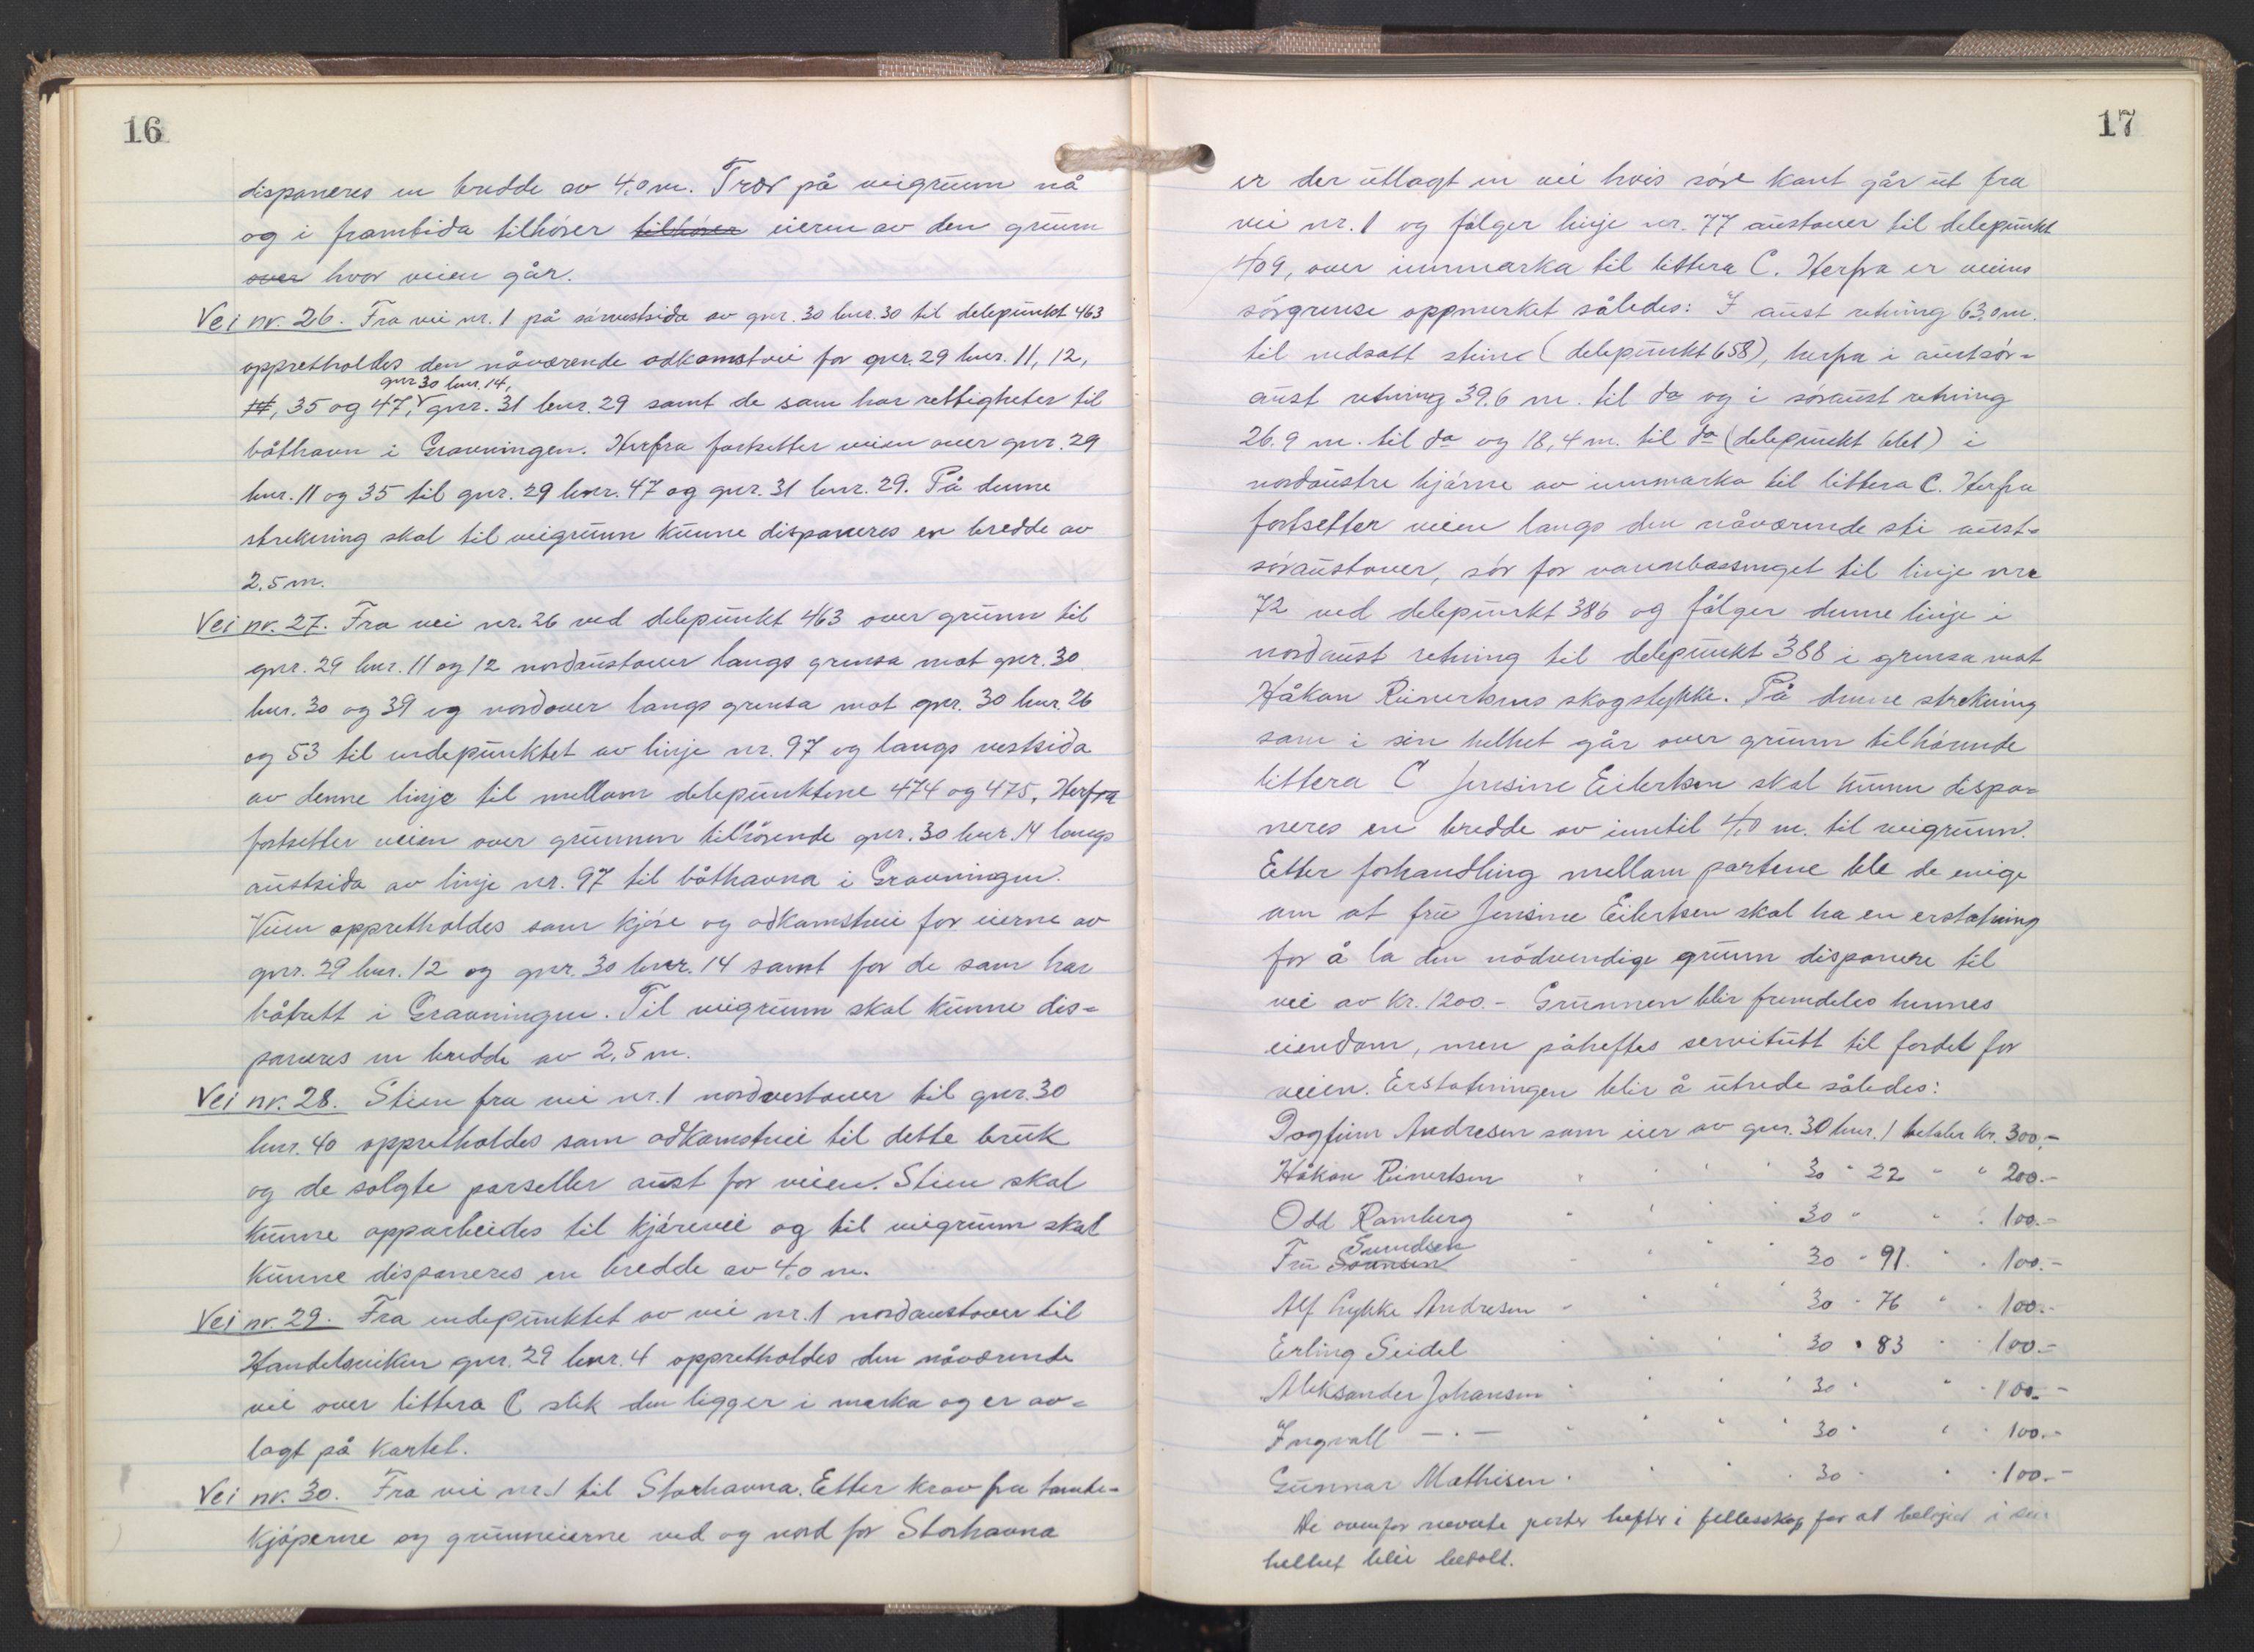 16
disponeres en bredde av 4,0 m. Trær på veigrunn nå
og i framtida tilhører tilhører eieren av den grunn
over hvor veien går.
Vei nr. 26. Fra vei nr. 1 på sørvestsida av gnr. 30 bnr. 30 til delepunkt 463
opprettholdes den nåværende adkomstvei for gnr. 29 bnr. 11, 12,
gnr 30 bnr. 14,
14, 35 og 47, gnr. 31 bnr. 29 samt de som har rettigheter til
båthavn i Gravningen. Herfra fortsetter veien over gnr. 29
bnr. 11 og 35 til gnr. 29 bnr. 47 og gnr. 31 bnr. 29. På denne
strekning skal til veigrunn kunne disponeres en bredde av
2,5 m.
Vei nr. 27. Fra vei nr. 26 ved delepunkt 463 over grunn til
gnr. 29 bnr. 11 og 12 nordaustover langs grensa mot gnr. 30
bnr. 30 og 39 og nordover langs grensa mot gnr. 30 bnr. 26
og 53 til endepunktet av linje nr. 97 og langs vestsida
av denne linje til mellom delepunktene 474 og 475. Herfra
fortsetter veien over grunnen tilhørende gnr. 30 bnr. 14 langs
austsida av linje nr. 97 til båthavna i Gravningen.
Veien opprettholdes som kjøre og adkomstvei for eierne av
gnr. 29 bnr. 12 og gnr. 30 bnr. 14 samt for de som har
båtrett i Gravningen. Til veigrunn skal kunne dis=
poneres en bredde av 2,5 m.
Vei nr. 28. Stien fra vei nr. 1 nordvestover til gnr. 30
bnr. 40 opprettholdes som adkomstvei til dette bruk
og de solgte parseller aust for veien. Stien skal
kunne opparbeides til kjørevei og til veigrunn skal
kunne disponeres en bredde av 4,0 m.
Vei nr. 29. Fra endepunktet av vei nr. 1 nordaustover til
Handelsviken gnr. 29 bnr. 4 opprettholdes den nåværende
vei over littera C slik den ligger i marka og er av=
lagt på kartet.
Vei nr. 30. Fra vei nr. 1 til Storhavna. Etter krav fra tomte=
kjøperne og grunneierne ved og nord for Storhavna
17
er der utlagt en vei hvis søre kant går ut fra
vei nr. 1 og følger linje nr. 77 austover til delepunkt
409, over innmarka til littera C. Herfra er veiens
sørgrense oppmerket således: I aust retning 63,0 m.
til nedsatt steine (delepunkt 658), herfra i austsør=
aust retning 39.6 m. til do og i søraust retning
26.9 m. til do og 18,4 m. til do (delepunkt 661) i
nordaustre hjørne av innmarka til littera C. Herfra
fortsetter veien langs den nåværende sti aust=
søraustover, sør for vannbassenget til linje nr.
72 ved delepunkt 386 og følger denne linje i
nordaust retning til delepunkt 388 i grensa mot
Håkon Reinertsens skogstykke. På denne strekning
som i sin helhet går over grunn tilhørende
littera C Jensine Eilertsen skal kunne dispo=
neres en bredde av inntil 4,0 m. til veigrunn.
Etter forhandling mellom partene ble de enige
om at fru Jensine Eilertsen skal ha en erstatning
for å la den nødvendige grunn disponere til
vei av kr. 1200.- Grunnen blir fremdeles hennes
eiendom, men påheftes servitutt til fordel for
veien. Erstatningen blir å utrede således:
Dagfinn Andresen som eier av gnr. 30 bnr. 1 betaler kr. 300.-
Håkon Reinertsen " " " " 30 " 22 " " 200.-
Odd Ramberg " " " " 30 " " " 100.-
Svendsen
Fru Sørensen " " " " 30 " 91. " " 100.-
Alf Lykke Andresen " " " " 30 " 76 " " 100.-
Erling Seidel " " " " 30 " 83 " " 100.-
Aleksander Johansen " " " " 30 " " " 100.-
Ingvall — " — " " " " 30 " " " 100.-
Gunnar Mathisen " " " " 30 " " " 100.-
De ovenfor nevnte parter hefter i fellesskap for at beløpet i sin
helhet blir betalt.